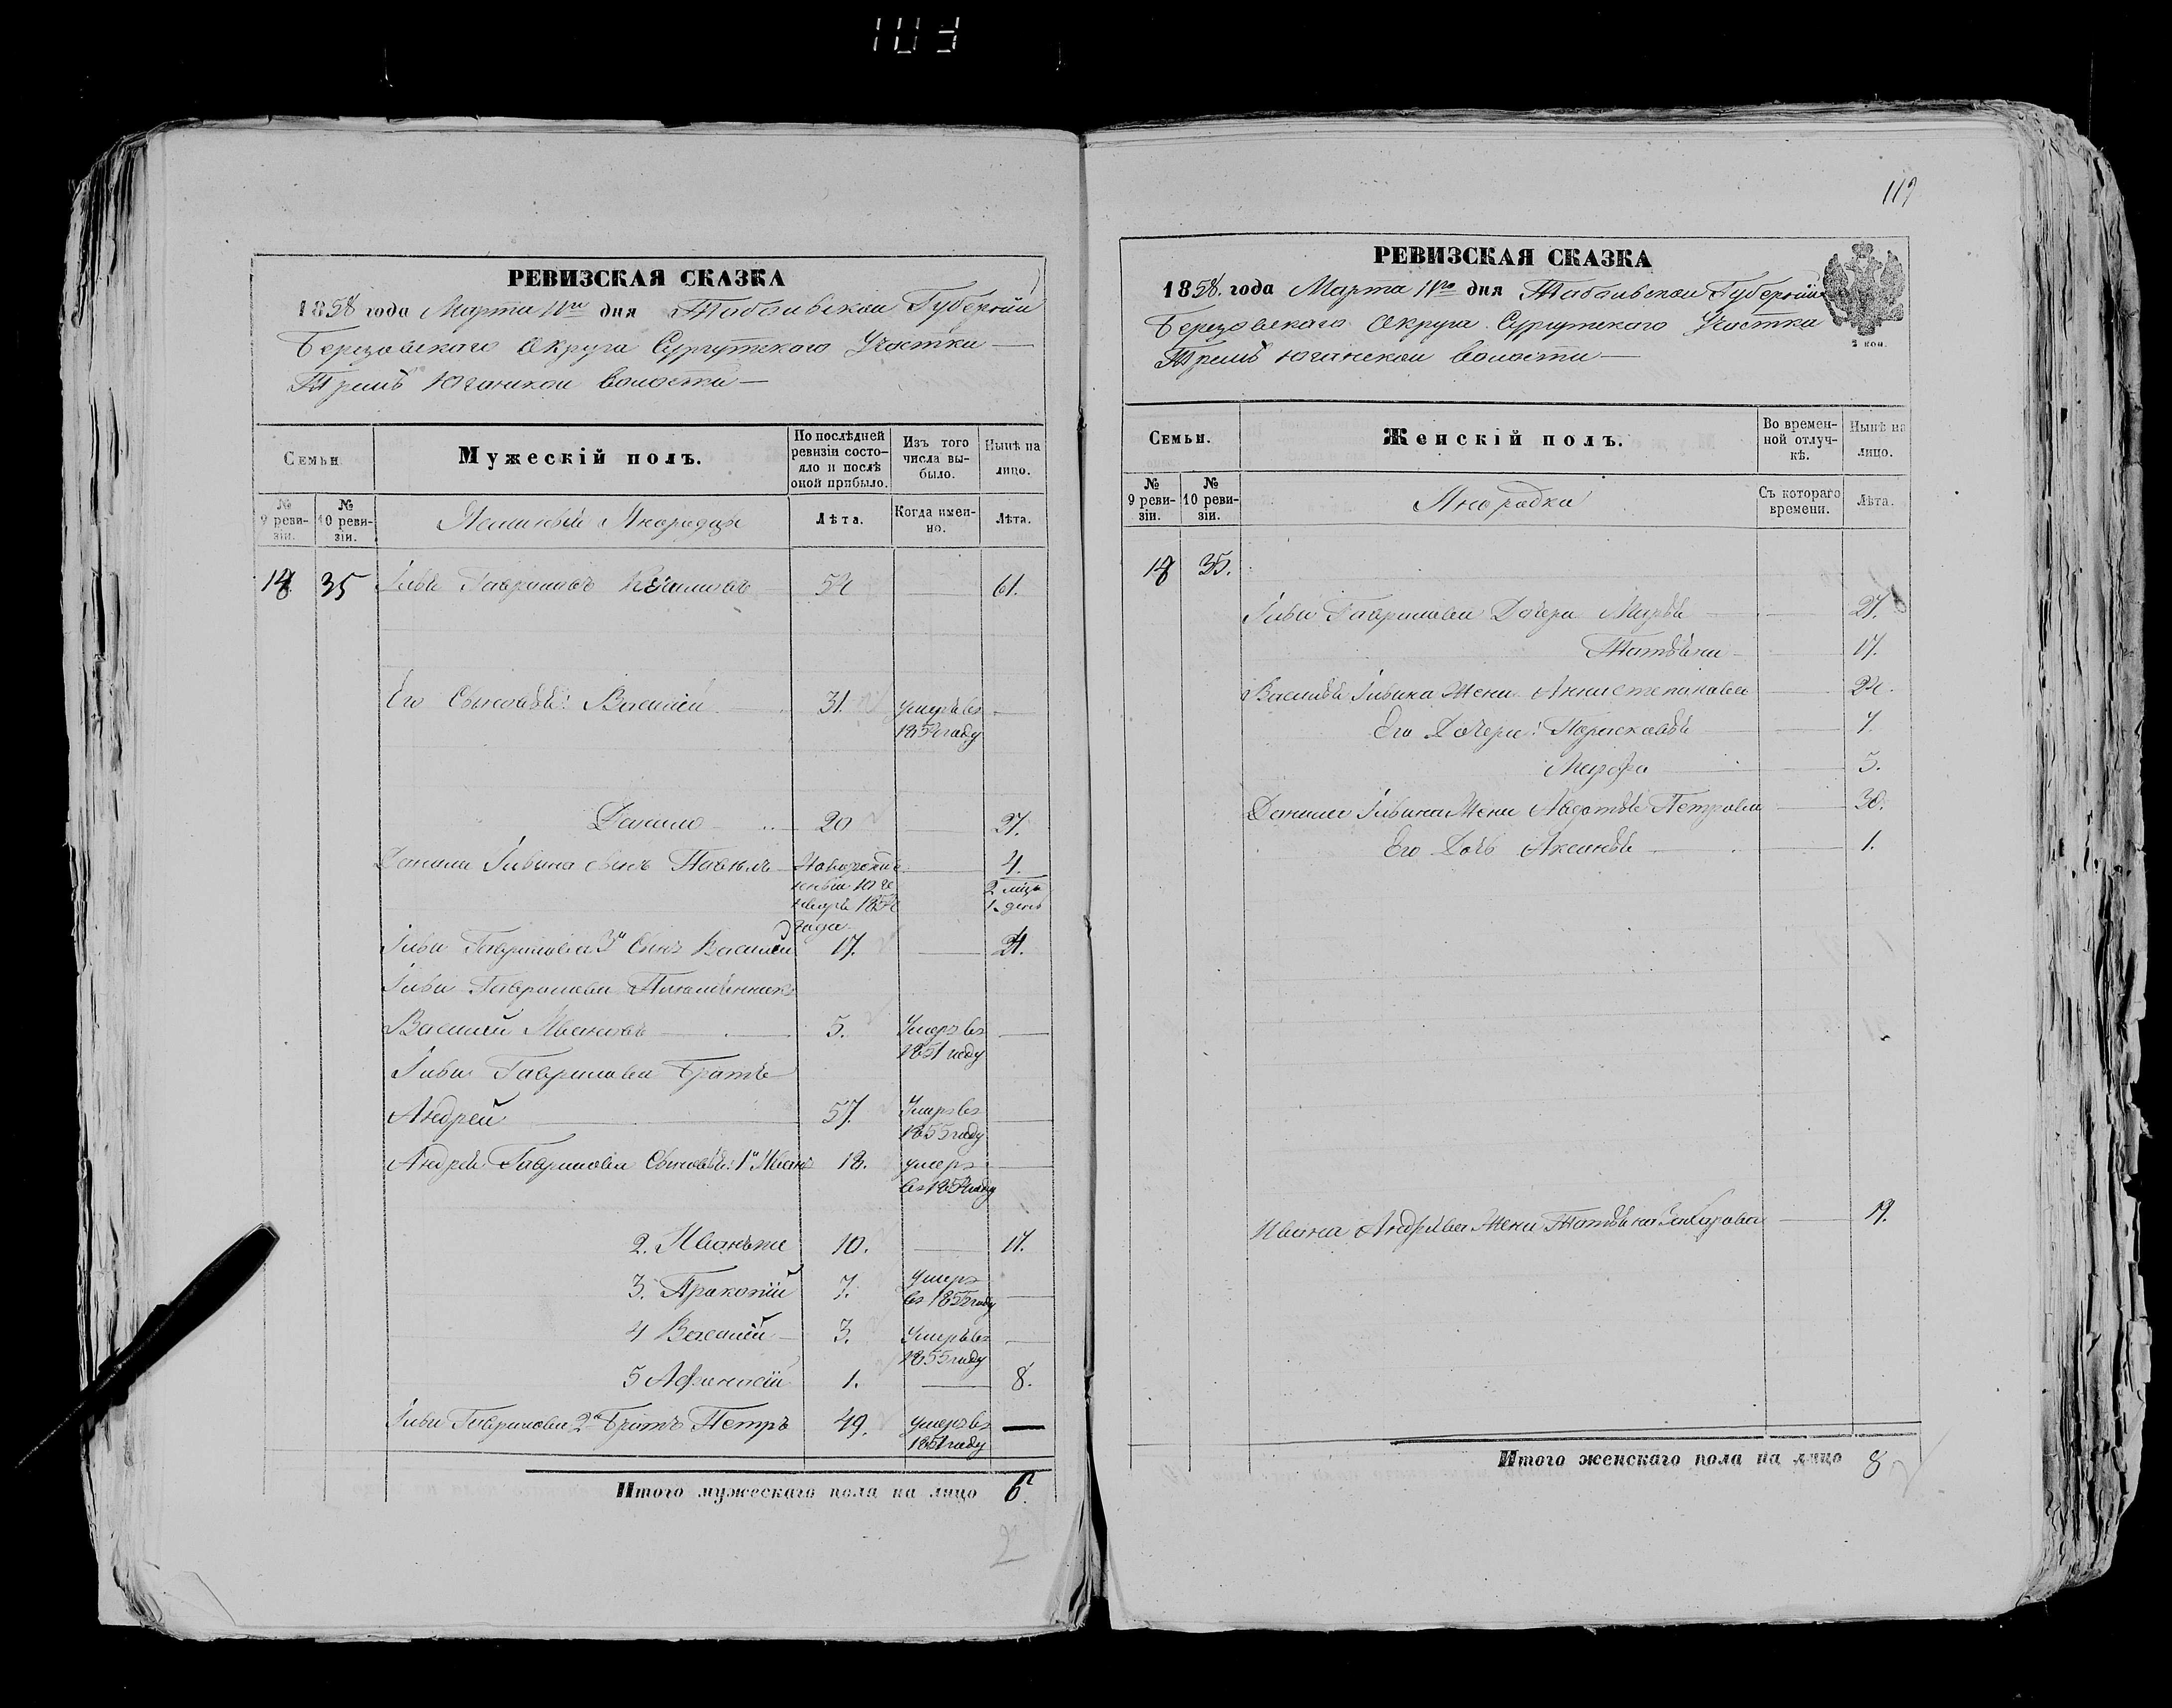 103
РЕВИЗСКАЯ СКАЗКА
1858 года Марта 11го дня Тобольской Губернiи
Березовскаго Округа Сургутскаго Участка —
Тремъ Юганской волости —
Семьи
Мужескiй полъ.
По послѣдней ревизiи состо-
яло и послѣ
оной прибыло.
Изъ того
числа вы-
было.
Нынѣ на
лицо.
№
9 реви-
зiи.
№
10 реви-
зiи.
Ясашный Инородцы
Лѣта.
Когда имен-
но.
Лѣта.
18. 35 Гавриловъ 54 — 61.
Его Сыновья: Василiй — 31. умеръ въ —
1854 году
Данило — 20 — 27.
Данилы сынъ Павелъ Новорожде- 4.
2 мца
1. день
1854
года
Гаврилова 3й Сынъ Василiй 17. — 24.
Гаврилова Племянникъ
Василiй Ивановъ — 5. Умеръ въ —
1851 году
Гаврилова Братъ
Андрей — 57. Умеръ въ —
1855 году
Андрея Гаврилова Сыновья: 1й Иванъ 18. умеръ —
въ 1854 году
2. Иванъ же 10. — 17.
3. Прокопiй 7. Умеръ
въ 1855 году —
4 Василiй — 3. Умеръ въ —
1855 году
5 Афанасiй 1. — 8.
Гаврилова 2й Братъ Петръ 49. умеръ въ —
1851 году
Итого мужескаго пола на лицо 6.
2
119
РЕВИЗСКАЯ СКАЗКА
1858. года Марта 11го дня Тобольской Губернiи
Березовскаго Округа Сургутскаго Участка
2 коп.
Тремъ Юганской волости —
Семьи.
Женскiй полъ.
Во времен-
ной отлуч-
кѣ.
Нынѣ на
лицо.
№
9 реви-
зiи.
№
10 реви-
зiи.
Инородки
Съ котораго
времени.
Лѣта.
18 35.
Гаврилова Дочери Марья — 27.
Татьяна — 17.
Василья Жена Анна Степанова — 24.
Его Дочери: Парасковья — 7.
Марфа — 5.
Данилы Жена Авдотья Петрова — 30.
Его Дочь Аксинья — 1.
Ивана Андреева Жена Татьяна Захарова — 19.
Итого женскаго пола на лицо 8